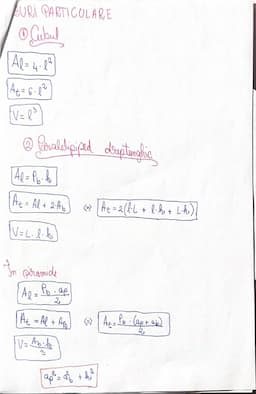 URI PARTICULARE
① Cubul
Al = 4 · l²
At = 6 · l²
V = l³
② Paralelipiped dreptunghic
Al = Pb · h
At = Al + 2Ab (=) At = 2(l·L + l·h + L·h)
V = L · l · h
In piramida
Al = Pb · ap / 2
At = Al + Ab (=) At = Pb · (ap + ab) / 2
V = Ab · h / 3
ap² = ab² + h²